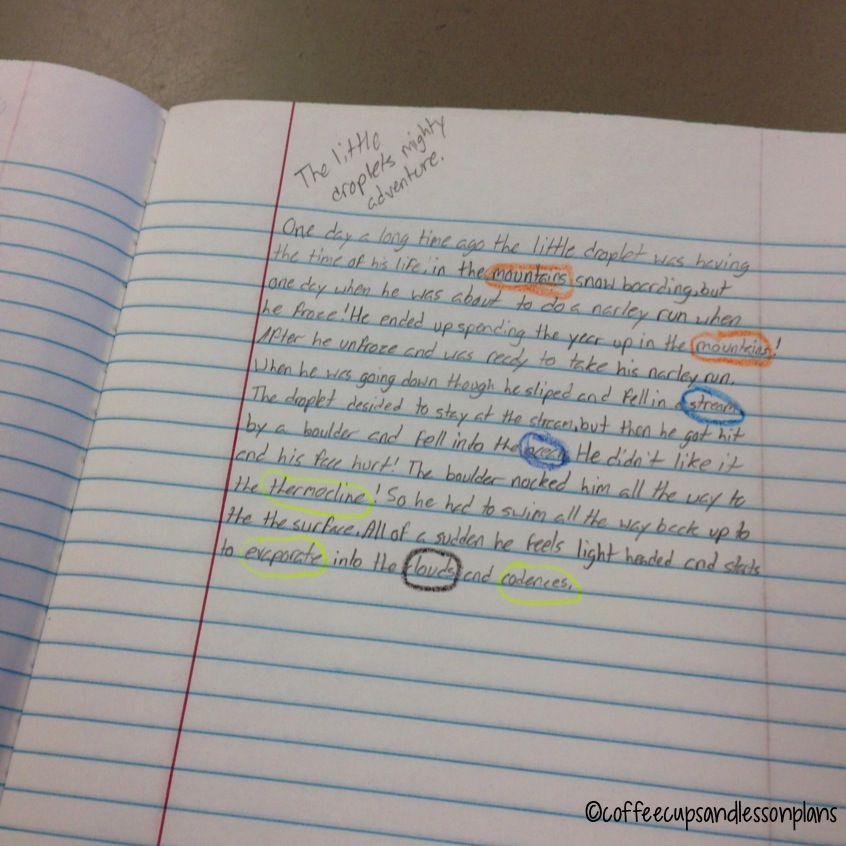 The little
droplets mighty
adventure.
One day a long time ago the little droplet was having
the time of his life, in the mountains snow boarding, but
one day when he was about to do a narley run when
he froze! He ended up spending the year up in the mountains!
After he unfroze and was ready to take his narley run.
When he was going down though he sliped and fell in a stream
The droplet desided to stay at the stream, but then he got hit
by a boulder and fell into the ocean. He didn't like it
and his face hurt! The boulder nocked him all the way to
the thermocline! So he had to swim all the way back up to
the the surface. All of a sudden he feels light headed and starts
to evaporate into the clouds and codences.
©coffeecupsandlessonplans